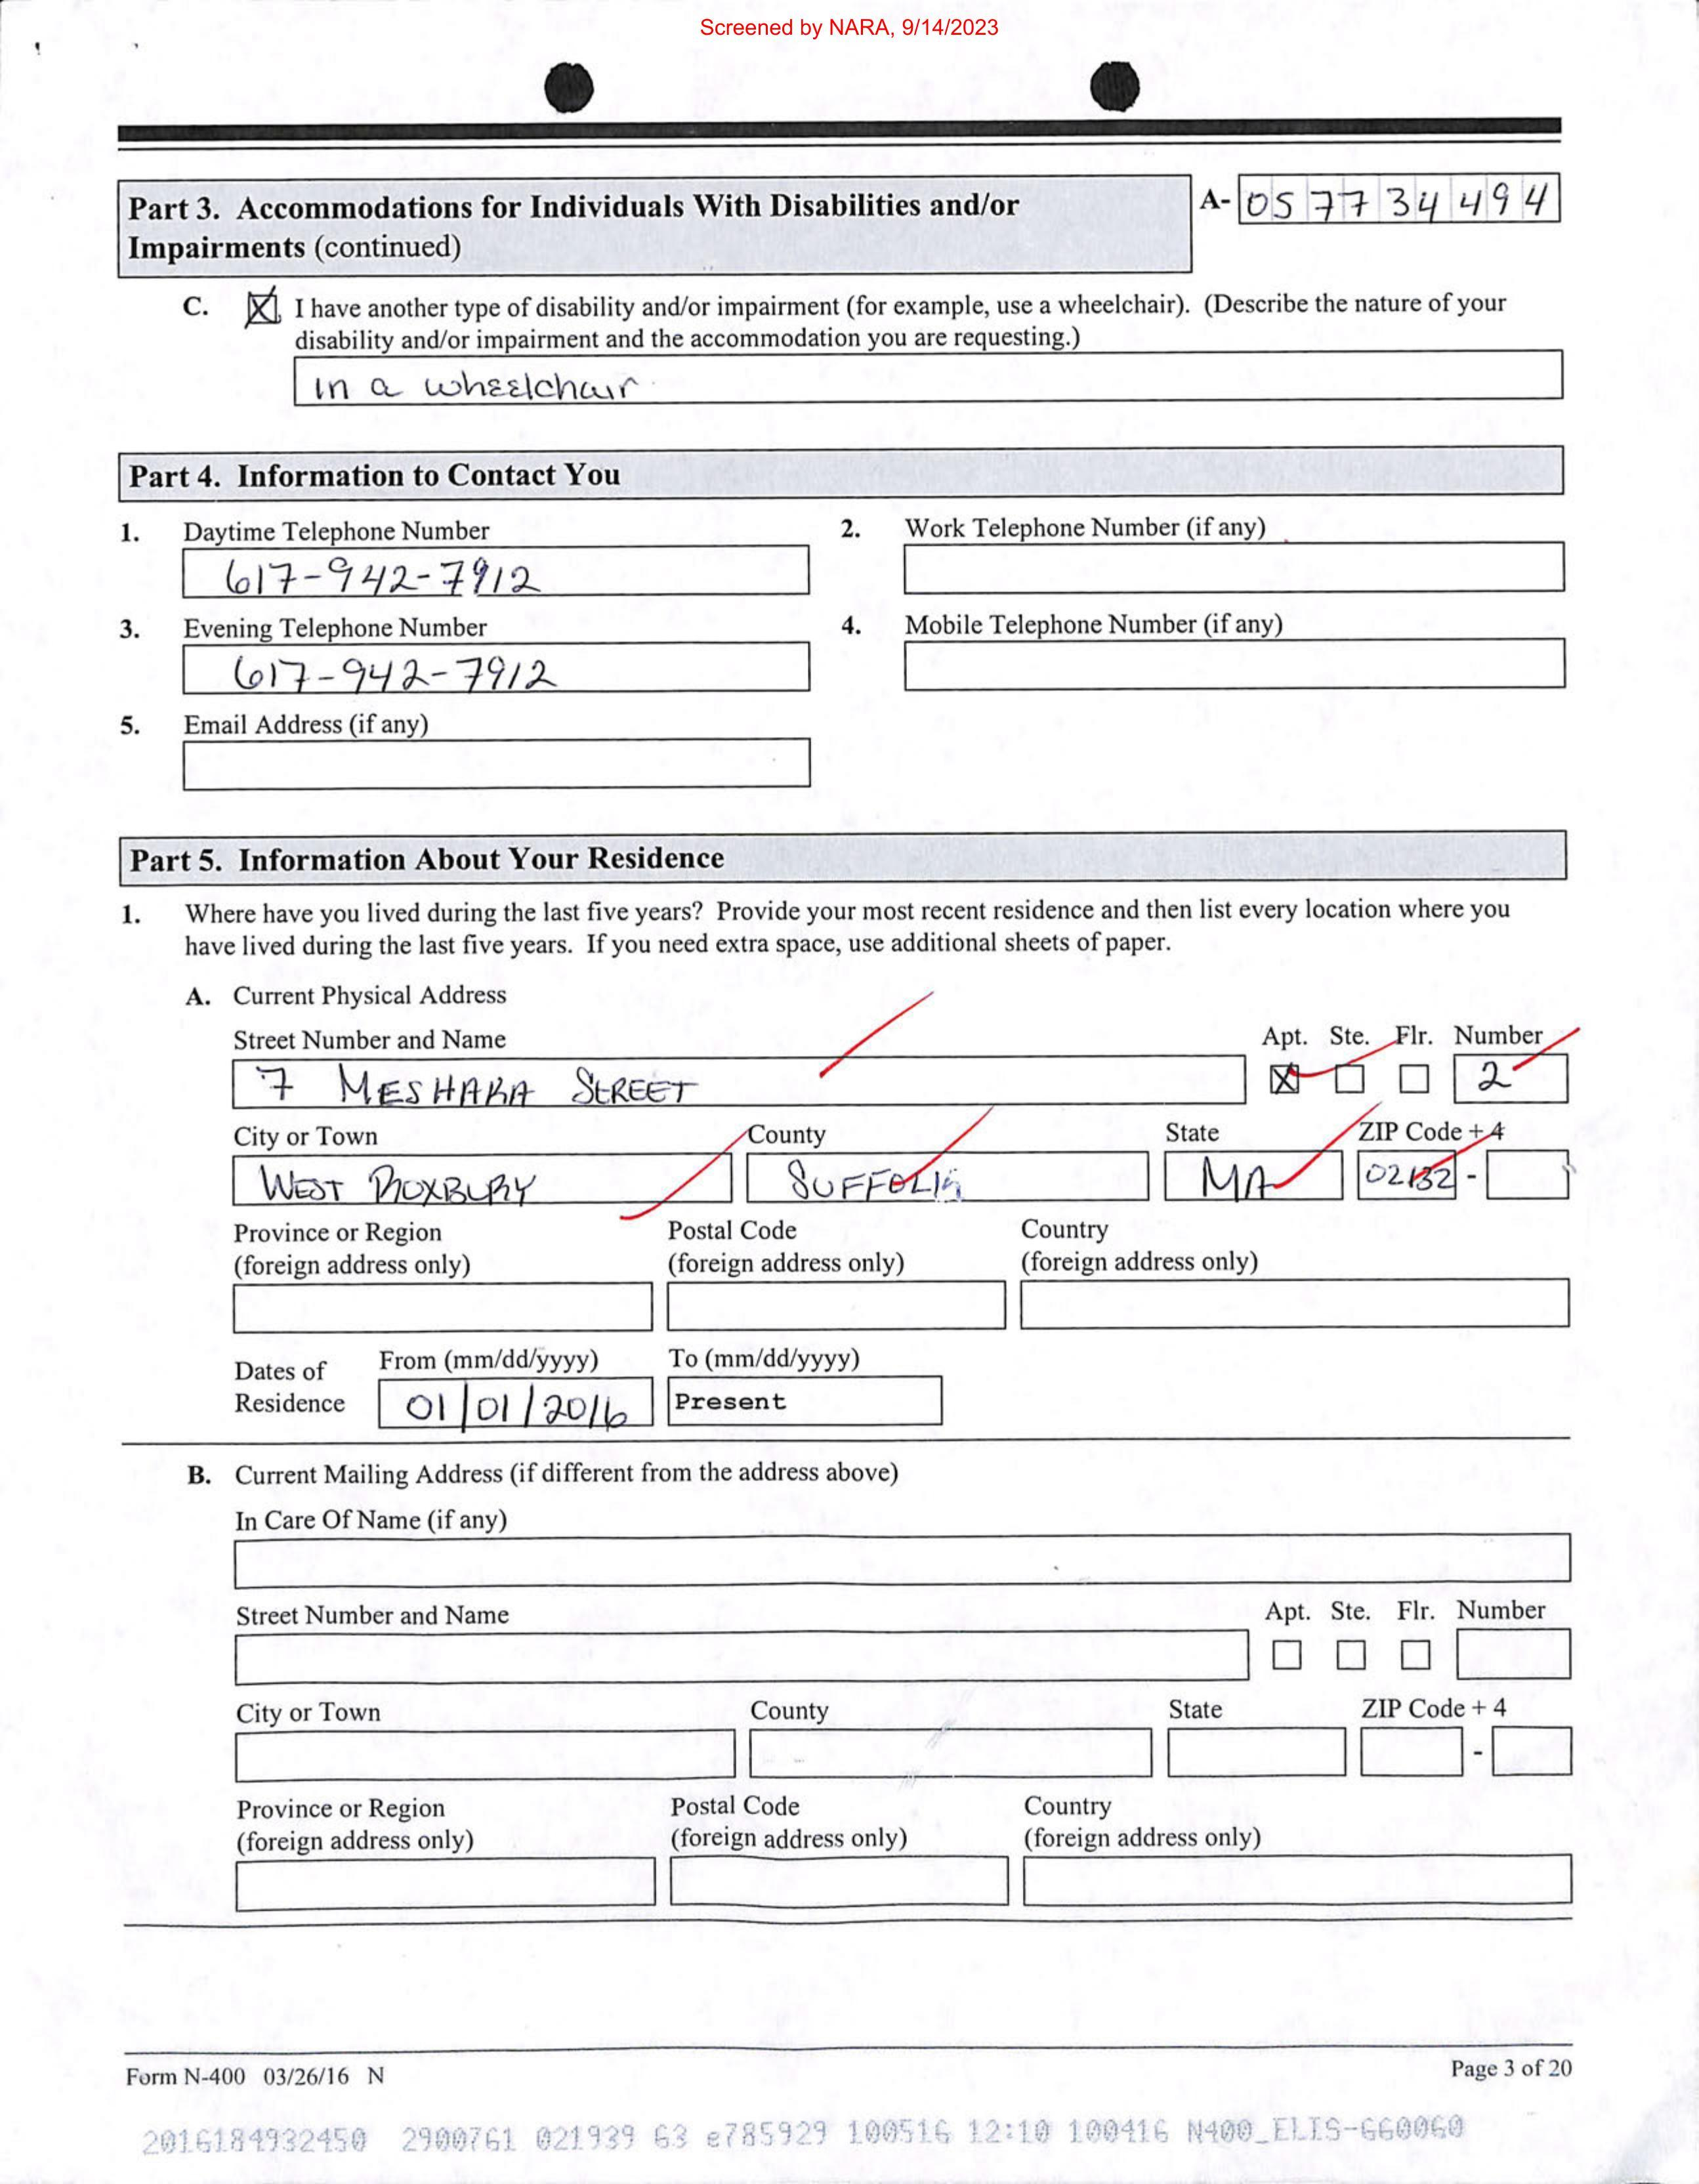 Screened by NARA, 9/14/2023
Part 3. Accommodations for Individuals With Disabilities and/or
Impairments (continued)
A- 057734494
C. I have another type of disability and/or impairment (for example, use a wheelchair). (Describe the nature of your
disability and/or impairment and the accommodation you are requesting.)
in a wheelchair
Part 4. Information to Contact You
1. Daytime Telephone Number
617-942-7912
2. Work Telephone Number (if any)
3. Evening Telephone Number
617-942-7912
4. Mobile Telephone Number (if any)
5. Email Address (if any)
Part 5. Information About Your Residence
1. Where have you lived during the last five years? Provide your most recent residence and then list every location where you
have lived during the last five years. If you need extra space, use additional sheets of paper.
A. Current Physical Address
Street Number and Name
Apt. Ste. Flr. Number
7 MESHAKA STREET
X 2
City or Town County State ZIP Code + 4
WEST ROXBURY SUFFOLK MA 02132 -
Province or Region Postal Code Country
(foreign address only) (foreign address only) (foreign address only)
Dates of From (mm/dd/yyyy) To (mm/dd/yyyy)
Residence 01/01/2016 Present
B. Current Mailing Address (if different from the address above)
In Care Of Name (if any)
Street Number and Name Apt. Ste. Flr. Number
City or Town County State ZIP Code + 4
-
Province or Region Postal Code Country
(foreign address only) (foreign address only) (foreign address only)
Form N-400 03/26/16 N Page 3 of 20
2016184932450 2900761 021939 63 e785929 100516 12:10 100416 N400_ELIS-660060